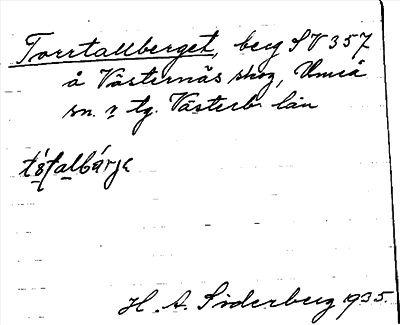 Torrtallberget, berg SV 357
å Västernäs skog, Umeå
sn. o tg. Västerb. län
tó̱ṯalbárjə
H. A. Söderberg 1935.